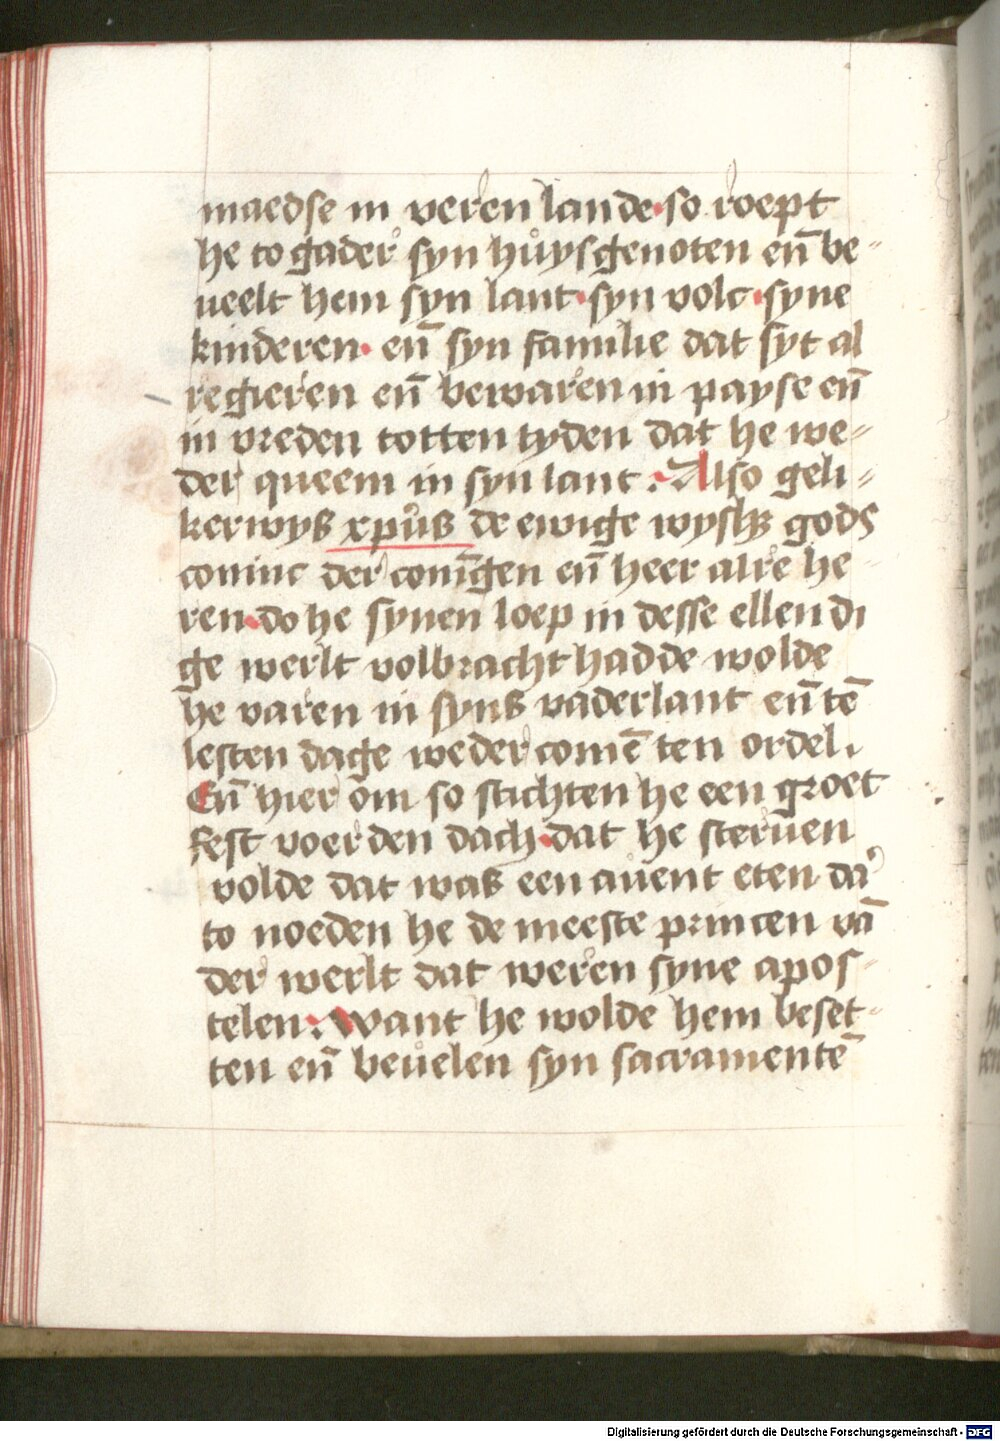 maedse in veren lande·so roept
he to gader syn hůysgenoten en̄ be⸗
ueelt hem syn lant·syn volc·syne
kinderen· en̄ syn familie dat syt al
regieren en̄ bewaren in payse en̄
in vreden totten tyden dat he we⸗
der queem in syn lant :Also geli⸗
kerwyß xpůß de ewige wyshꝫ gods
coninc der coni̅gen en̄ heer alre he⸗
ren·do he synen loep in desse ellendi
ge werlt volbracht hadde wolde
he varen in synß vaderlant en̄ te̅
lesten dage weder come̅ ten ordel.
En̄ hier om so stichten he een groet
fest voer den dach·dat he steruen
volde dat waß een auent eten da᷑
to noeden he de meeste princen va̅
der werlt dat weren syne apos⸗
telen:Want he wolde hem beset⸗
ten en̄ beůelen syn sacramente̅
Digitalisierung gefördert durch die Deutsche Forschungsgemeinschaft - DFG